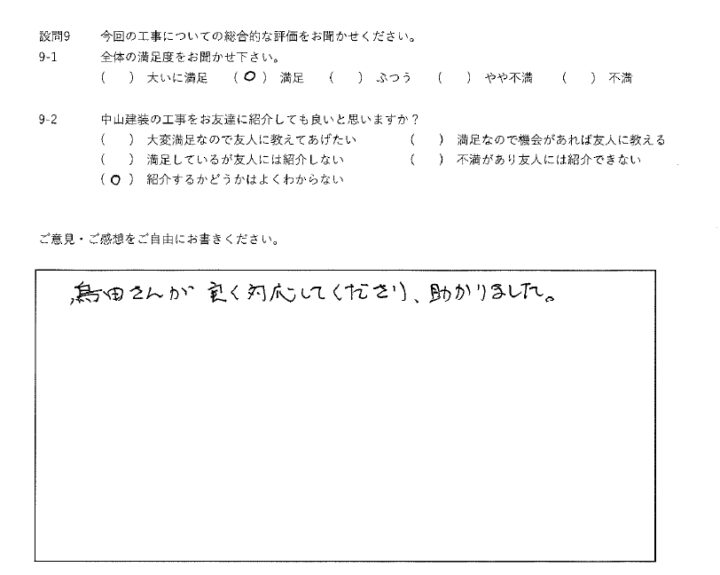 設問9 今回の工事についての総合的な評価をお聞かせください。
9-1 全体の満足度をお聞かせ下さい。
( ) 大いに満足 ( O ) 満足 ( ) ふつう ( ) やや不満 ( ) 不満
9-2 中山建装の工事をお友達に紹介しても良いと思いますか？
( ) 大変満足なので友人に教えてあげたい ( ) 満足なので機会があれば友人に教える
( ) 満足しているが友人には紹介しない ( ) 不満があり友人には紹介できない
( O ) 紹介するかどうかはよくわからない
ご意見・ご感想をご自由にお書きください。
島田さんが良く対応してくださり、助かりました。